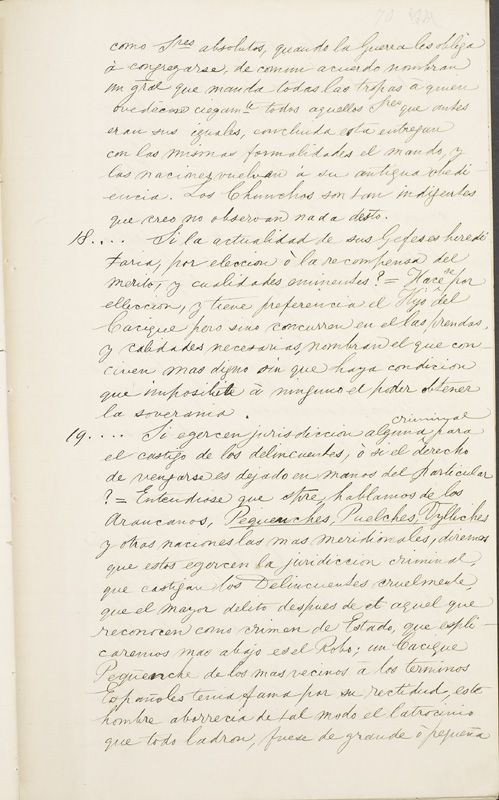 como Sres absolutos, quando la Guerra les obliga
à congregarse, de comun acuerdo nombran
un gral que manda todas las tropas à quien
ovedecen ciegamte todos aquellos Sres que antes
eran sus iguales, concluida esta entregan
con las mismas formalidades el mando, y
las naciones vuelven à su antigua obedi-
encia. Los Chunchos son tan indigentes
que creo no observan nada desto.
18.... Si la actualidad de sus Gefes es heredi
taria, por eleccion ò la recompensa del
merito, y cualidades eminentes? = Hacese por
elleccion, y tiene preferencia el Hijo del
Cacique pero sino concurren en el las prendas,
y calidades necesarias, nombran el que con
civen mas digno sin que haya condicion
que imposibilite à ninguno el poder obtener
la soverania.
19.... Si egercen jurisdiccion criminal alguna para
el castigo de los delincuentes, ò si el derecho
de vengarse es dejado en manos del particular
? = Entendiose que spre hablamos de los
Araucanos, Peguenches, Puelches, Vylliches
y otras naciones las mas meridionales, diremos
que estos egercen la juridiccion criminal,
que castigan los Delincuentes cruelmente,
que el mayor delito despues de aquel que
reconocen como crimen de Estado, que espli-
caremos mas abajo es el Robo; un Cacique
Peguenche de los mas vecinos à los terminos
Españoles tenia fama por su rectidud, este
hombre aborrecia de tal modo el latrocinio
que todo ladron, fuese de grande ò pequeña